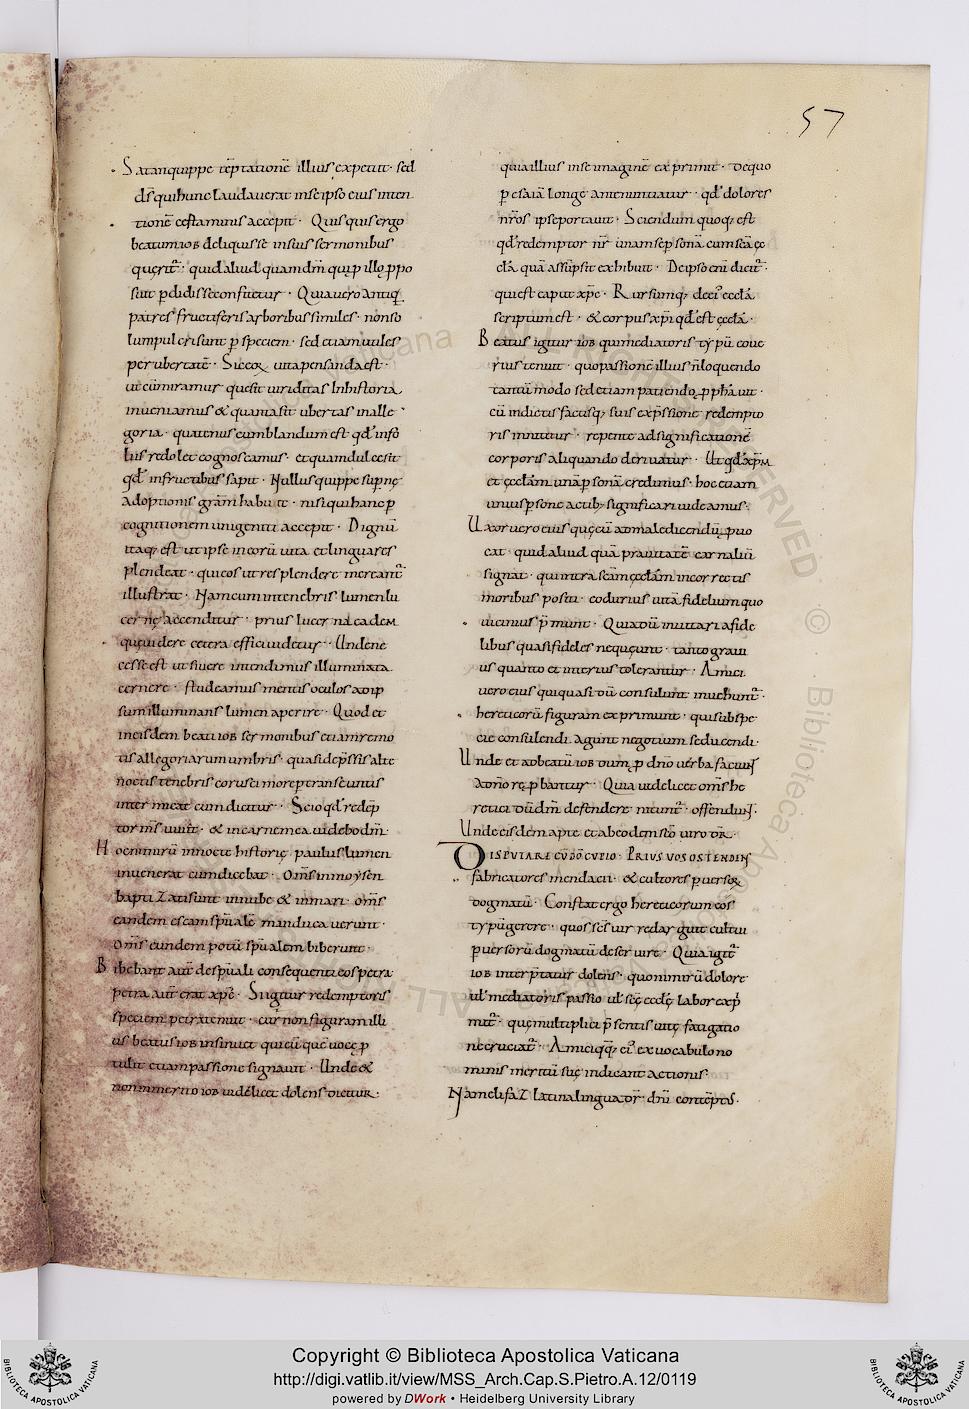 57
Satan quippe tēptationē illius expetiit · sed
d̄s qui hunc laudauerat in se ipso eius inten
tionē certaminis accepit · Quisquis ergo
beatum iob deliquisse in suis sermonibus
quęrit͛ · quid aliud quam dm̄ qui ꝓ illo ꝓpo
suit ꝑdidisse confitetur · Quia uero antiq̨
patres fructiferis arboribus similes · non so
lum pulcri sunt ꝑ speciem · sed etiam utiles
per ubertatē · Sic eoꝝ uita pensanda est ·
ut cū miramur que sit uiriditas in historia
inueniamus & quanta sit ubertas in alle
goria · quatenus cum blandum est qd̄ in fo
liis redolet cognoscamus · et quam dulce sit
qd̄ in fructibus sapit · Nullus quippe sup̄nę
adoptionis grām habuit · nisi qui hanc ꝑ
cognitionem unigeniti accepit · Dignū
itaq; est ut ipse in eorū uita et lingua res
plendeat · qui eos ut resplendere mereant͛
illustrat · Nam cum in tenebris lumen lu
cernę accenditur · prius lucerna eadem
quę uidere cetera efficit uidetur · Unde ne
cesse est ut si uere intendimus illuminata
cernere · studeamus mentis oculos ad ip
sum illuminans lumen aperire · Quod et
in eisdem beati iob sermonibus etiam remo
tis allegoriarum umbris · quasi depssis alte
noctis tenebris corusci more transeuntis
inter micat cum dicitur · Scio qd̄ redēp
tor m̄s uiuit · & in carne mea uidebo dm̄ ·
Hoc nimirū in nocte historię paulus lumen
inuenerat cum dicebat · Om̄s in moysen
baptizati sunt in nube & in mari · om̄s
eandem escam spūalē manducauerunt ·
om̄s eundem potū spūalem biberunt ·
Bibebant aut̄ de spūali consequenti eos petra
petra aut̄ erat xp̄c · Si igitur redemptoris
speciem petra tenuit · cur non figuram illi
us beatus iob insinuet qui eū quē uoce ꝓ
tulit etiam passione signauit · Unde &
non immerito iob uidelicet dolens dicitur :
quia illius in se imaginē exprimit · de quo
ꝑ esaiā longe ante nuntiatur · qd̄ dolores
nr̄os ipse portauit · Sciendum quoq; est
qd̄ redemptor nr̄ unam se ꝑsonā cum scā ęc
clā quā assūpsit exhibuit · De ipso eni dicit͛ ·
qui est caput xp̄c · Rursumq; de ei' ecclā
scriptum est · & corpus xp̄i qd̄ est ęcclā ·
Beatus igitur iob qui mediatoris typū eo ue
rius tenuit · quo passionē illius n̄ loquendo
tantū modo sed etiam patiendo ꝓphāuit ·
cū in dictis factisq; suis exp̄ssione redempto
ris innititur · repente ad significationē
corporis aliquando deriuatur · Ut qd̄ xp̄m
et ęcclam unā ꝑsonā credimus · hoc etiam
unius ꝑsone actib; significari uideamus ·
Uxor uero eius quę eū ad maledicendū ꝓuo
cat · quid aliud quā prauitatē carnaliū
signat · qui intra scam ęcclam incorrectis
moribus positi · eo durius uitā fidelium quo
uicinius p̄munt · Quia dū uitari a fide
libus quasi fideles nequeunt · tanto graui
us quanto et interius tolerantur · Amici
uero eius qui quasi dū consulunt inuehunt͛ ·
hereticorū figuram exprimunt · qui sub spe
cie consulendi agunt negotium seducendi ·
Unde et ad beatū iob dum ꝓ dn̄o uerba faciunt
a dn̄o reꝓbantur · Quia uidelicet om̄s he
retici dū dm̄ defendere nitunt͛ · offendunt ·
Unde eisdem apte et ab eodem sc̄o uiro dr̄ ·
DISPUTARE CŪ DŌ CUPIO · PRIUS VOS OSTENDENS
fabricatores mendacii · & cultores ꝑuersoꝝ
dogmatū · Constat ergo hereticorum eos
typū gerere · quos scs uir redarguit cultui
ꝑuersorū dogmatū deseruire · Quia igit͛
iob interp̄tatur dolens · quo nimirū dolore
ul' mediatoris passio ul' scę ęcclę labor exp̄
mit͛ · quę multiplici p̄sentis uitę fatigatio
ne cruciat͛ · Amici qq; ei' ex uocabulo no
minis meritū suę indicant actionis ·
Nam elifaz latina lingua dr̄ · dn̄i contēptus ·
Copyright © Biblioteca Apostolica Vaticana
http://digi.vatlib.it/view/MSS_Arch.Cap.S.Pietro.A.12/0119
powered by DWork • Heidelberg University Library